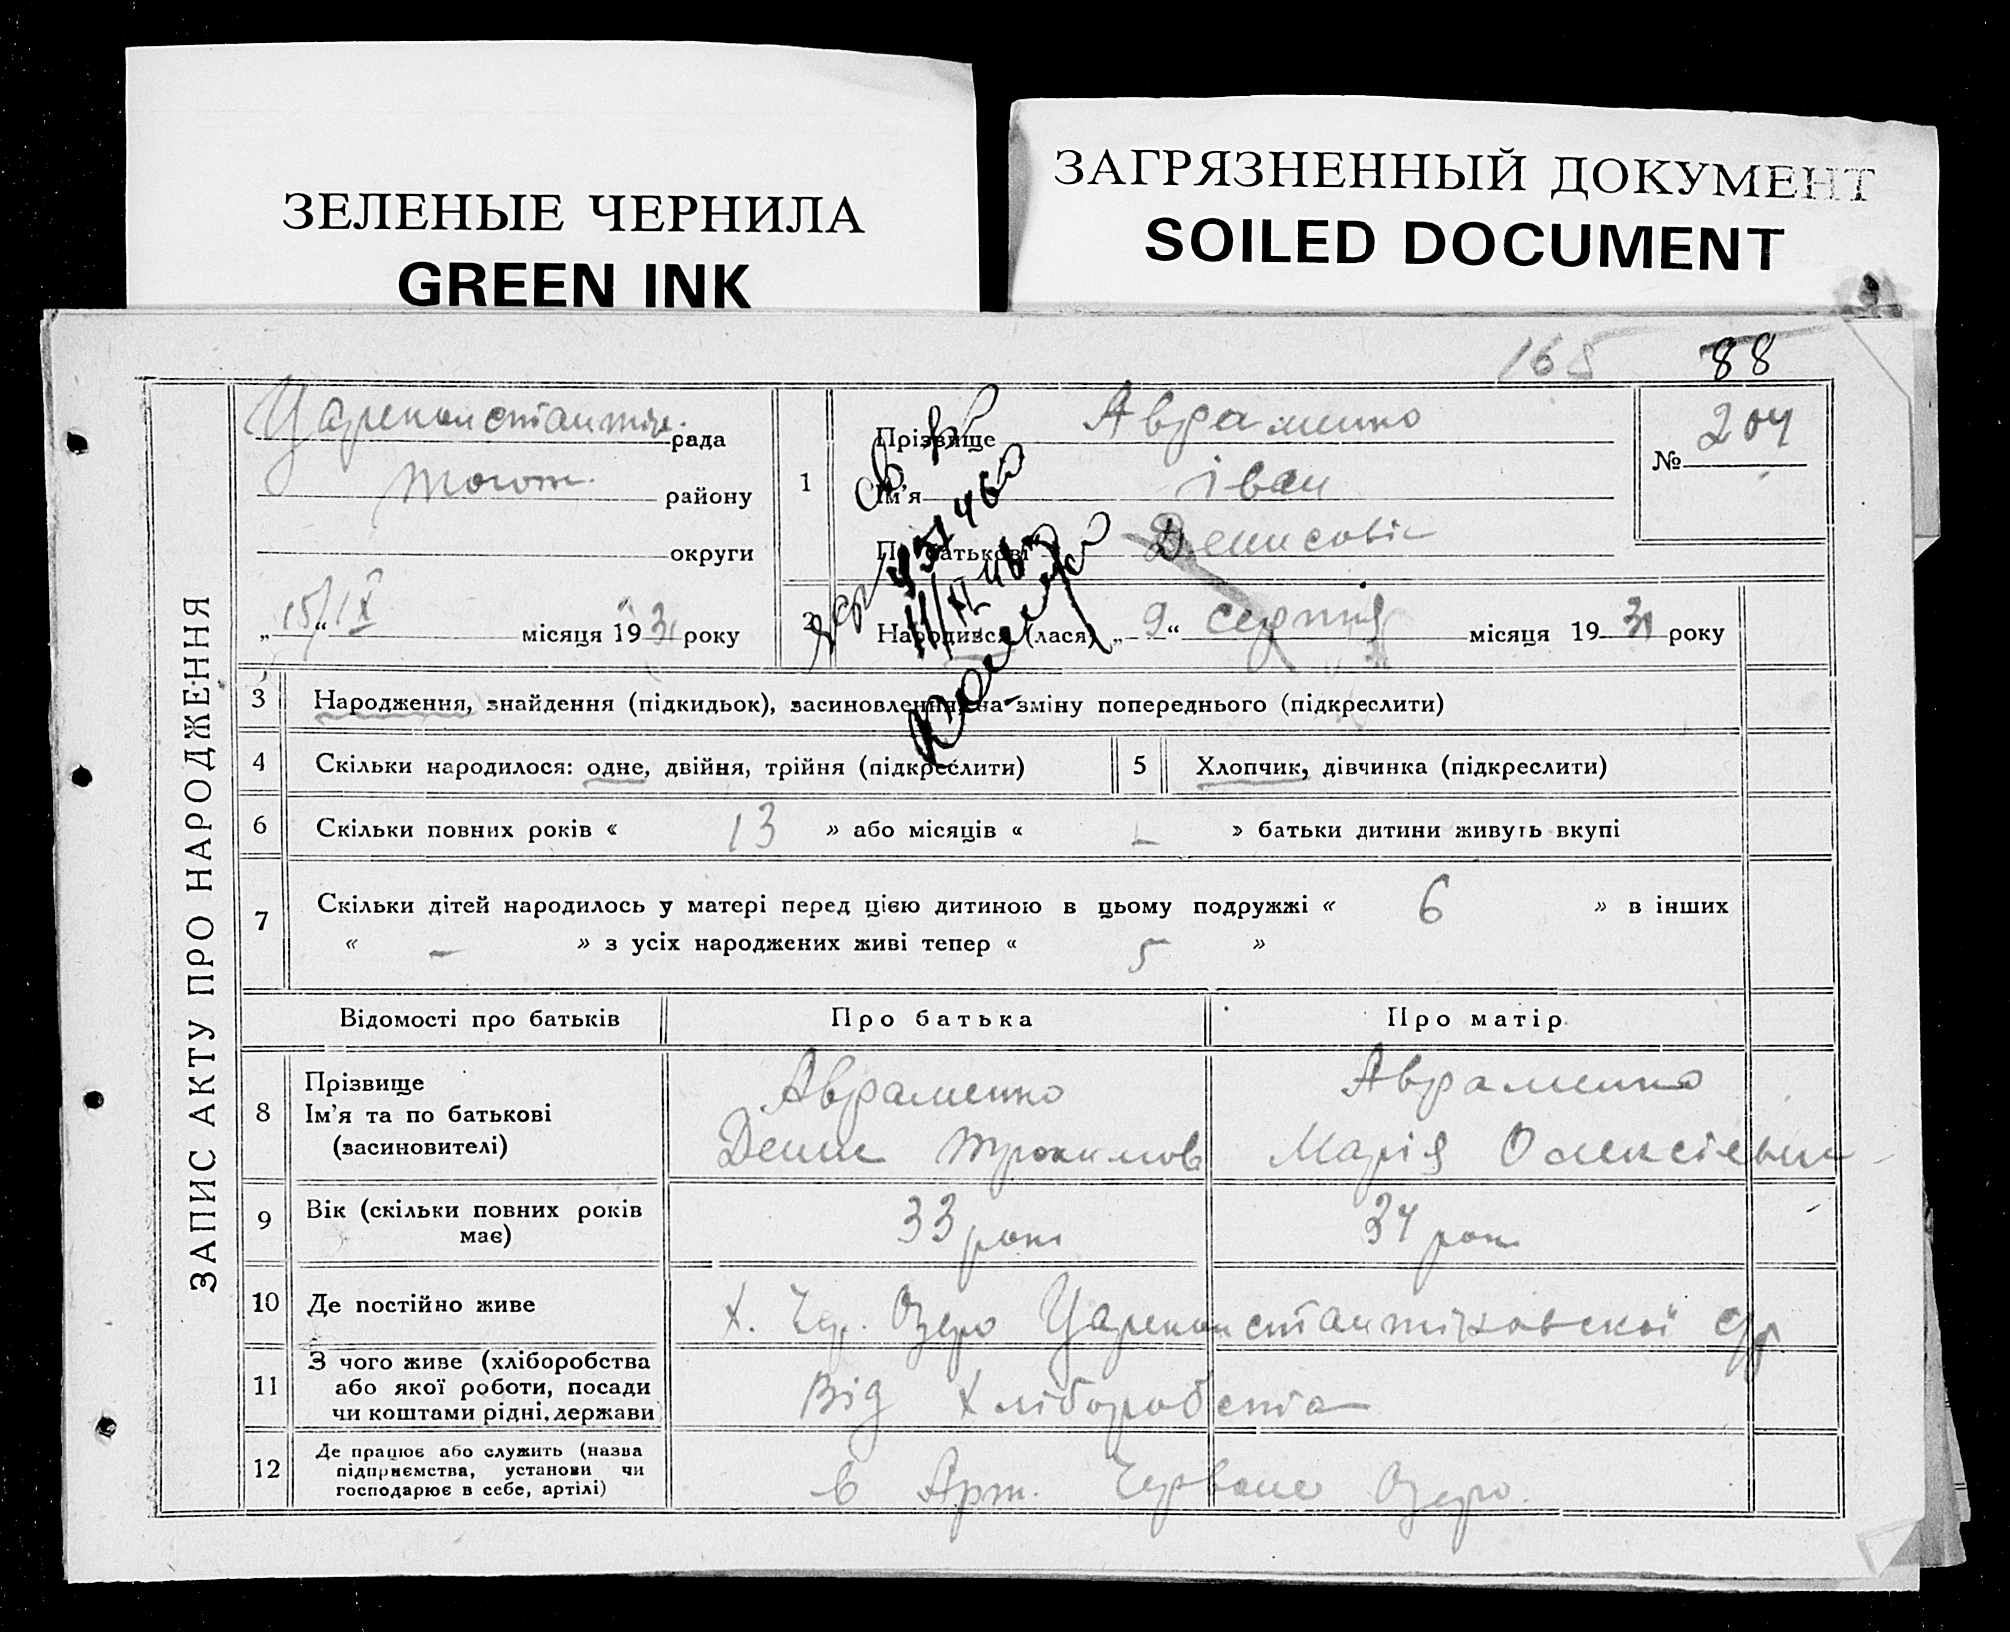 ЗЕЛЕНЫЕ ЧЕРНИЛА
GREEN INK
ЗАГРЯЗНЕННЫЙ ДОКУМЕНТ
SOILED DOCUMENT
165 88
ЗАПИС АКТУ ПРО НАРОДЖЕННЯ
рада
району
округи
„15/“ IX місяця 1931 року
1 Прізвище Авраменко
Ім'я Іван
По батькові Денисовіч
№ 204
2 Народився (лася) „9“ серпня місяця 1931 року
3 Народження, знайдення (підкидьок), засиновлення, на зміну попереднього (підкреслити)
4 Скільки народилося: одне, двійня, трійня (підкреслити)
5 Хлопчик, дівчинка (підкреслити)
6 Скільки повних років « 13 » або місяців « – » батьки дитини живуть вкупі
7 Скільки дітей народилось у матері перед цією дитиною в цьому подружжі « 6 » в інших
« – » з усіх народжених живі тепер « 5 »
Відомості про батьків Про батька Про матір
8 Прізвище
Ім'я та по батькові
(засиновителі)
Авраменко
Денис Трохимов
Авраменко
Марія Олексієвн
9 Вік (скільки повних років
має)
33 рок
34 рок
10 Де постійно живе
х. Чер. Озеро Царенконстантіновскої с/р
11 З чого живе (хліборобства
або якої роботи, посади
чи коштами рідні, держави
Від Хліборобства
12 Де працює або служить (назва
підприємства, установи чи
господарює в себе, артілі)
в Арт. Червоне Озеро.